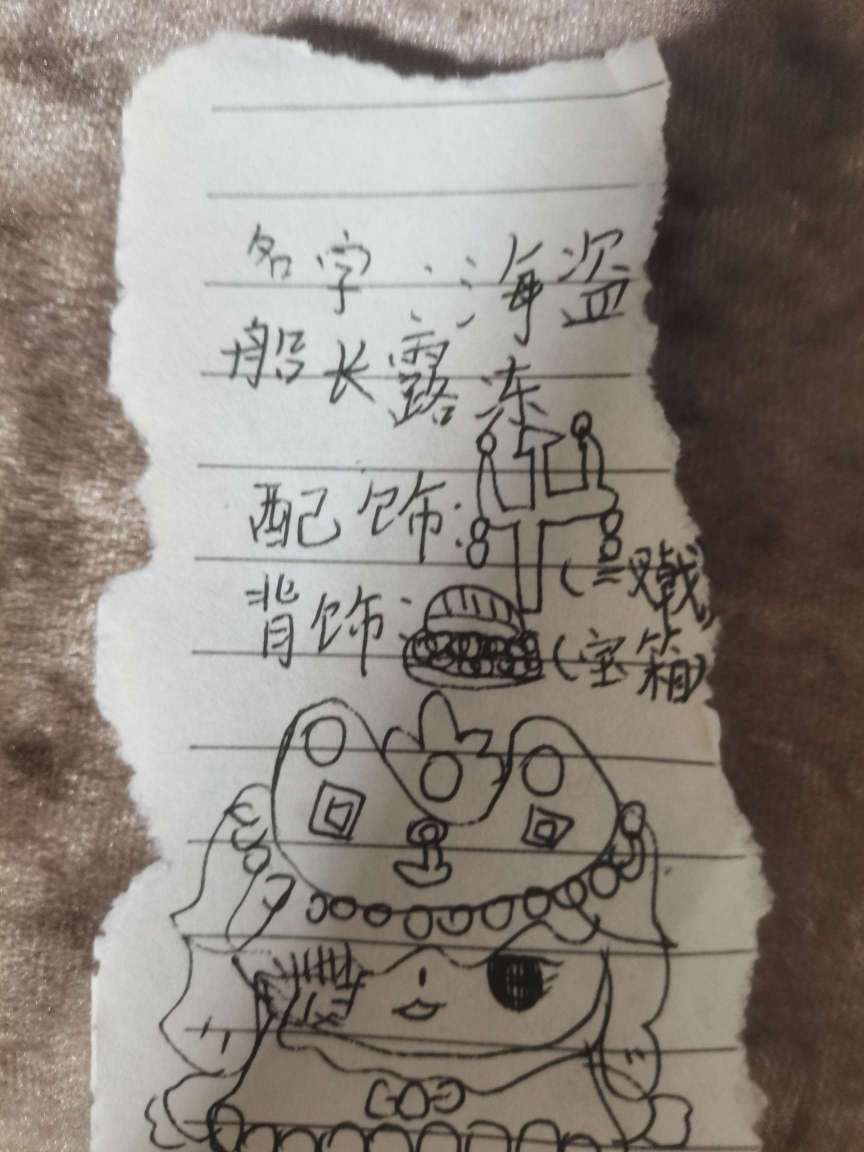 名字：海盗
船长露冻
配饰：（三叉戟）
背饰：（宝箱）